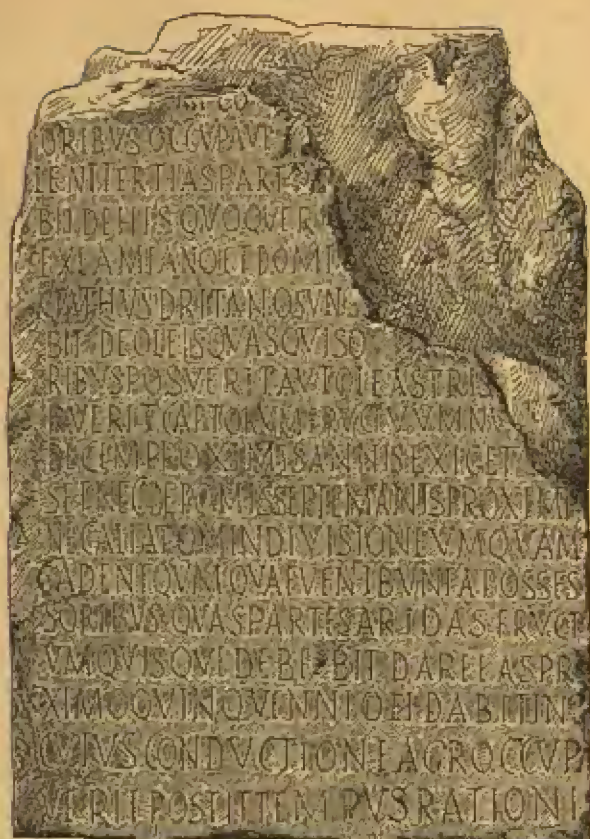 CO
ORIBVSOCCVPAVE
LENTTERTIASPARTES
BITDEHISQVOQVER
EXLAMIANOETDOMI
CTVTHVSDRITANOSVN
BIT DEOLEISQVASQVISQ
RIBVSPOSVERITAVTOLEASTRIS
RVERITCAPTORVMFRVCTVVMNV
DECEMPROXIMISANNISEXIGET
SETNECDEPOMISSEPTEMANNISPROXIMI
NECALIAPOMINDIVISIONEVMQVAM
CADENTQVMQVAEVENIBVNTAPOSSES
SORIBVSQVASPARTESARIDASFRVCT
VMQVISQVEDEBEBIT DAREEASPR
XIMOQVINQVENNIOEIDABITIN
CVIVSCONDVCTIONEAGROCCVPA
VERITPOSTITTEMPVSRATIONI